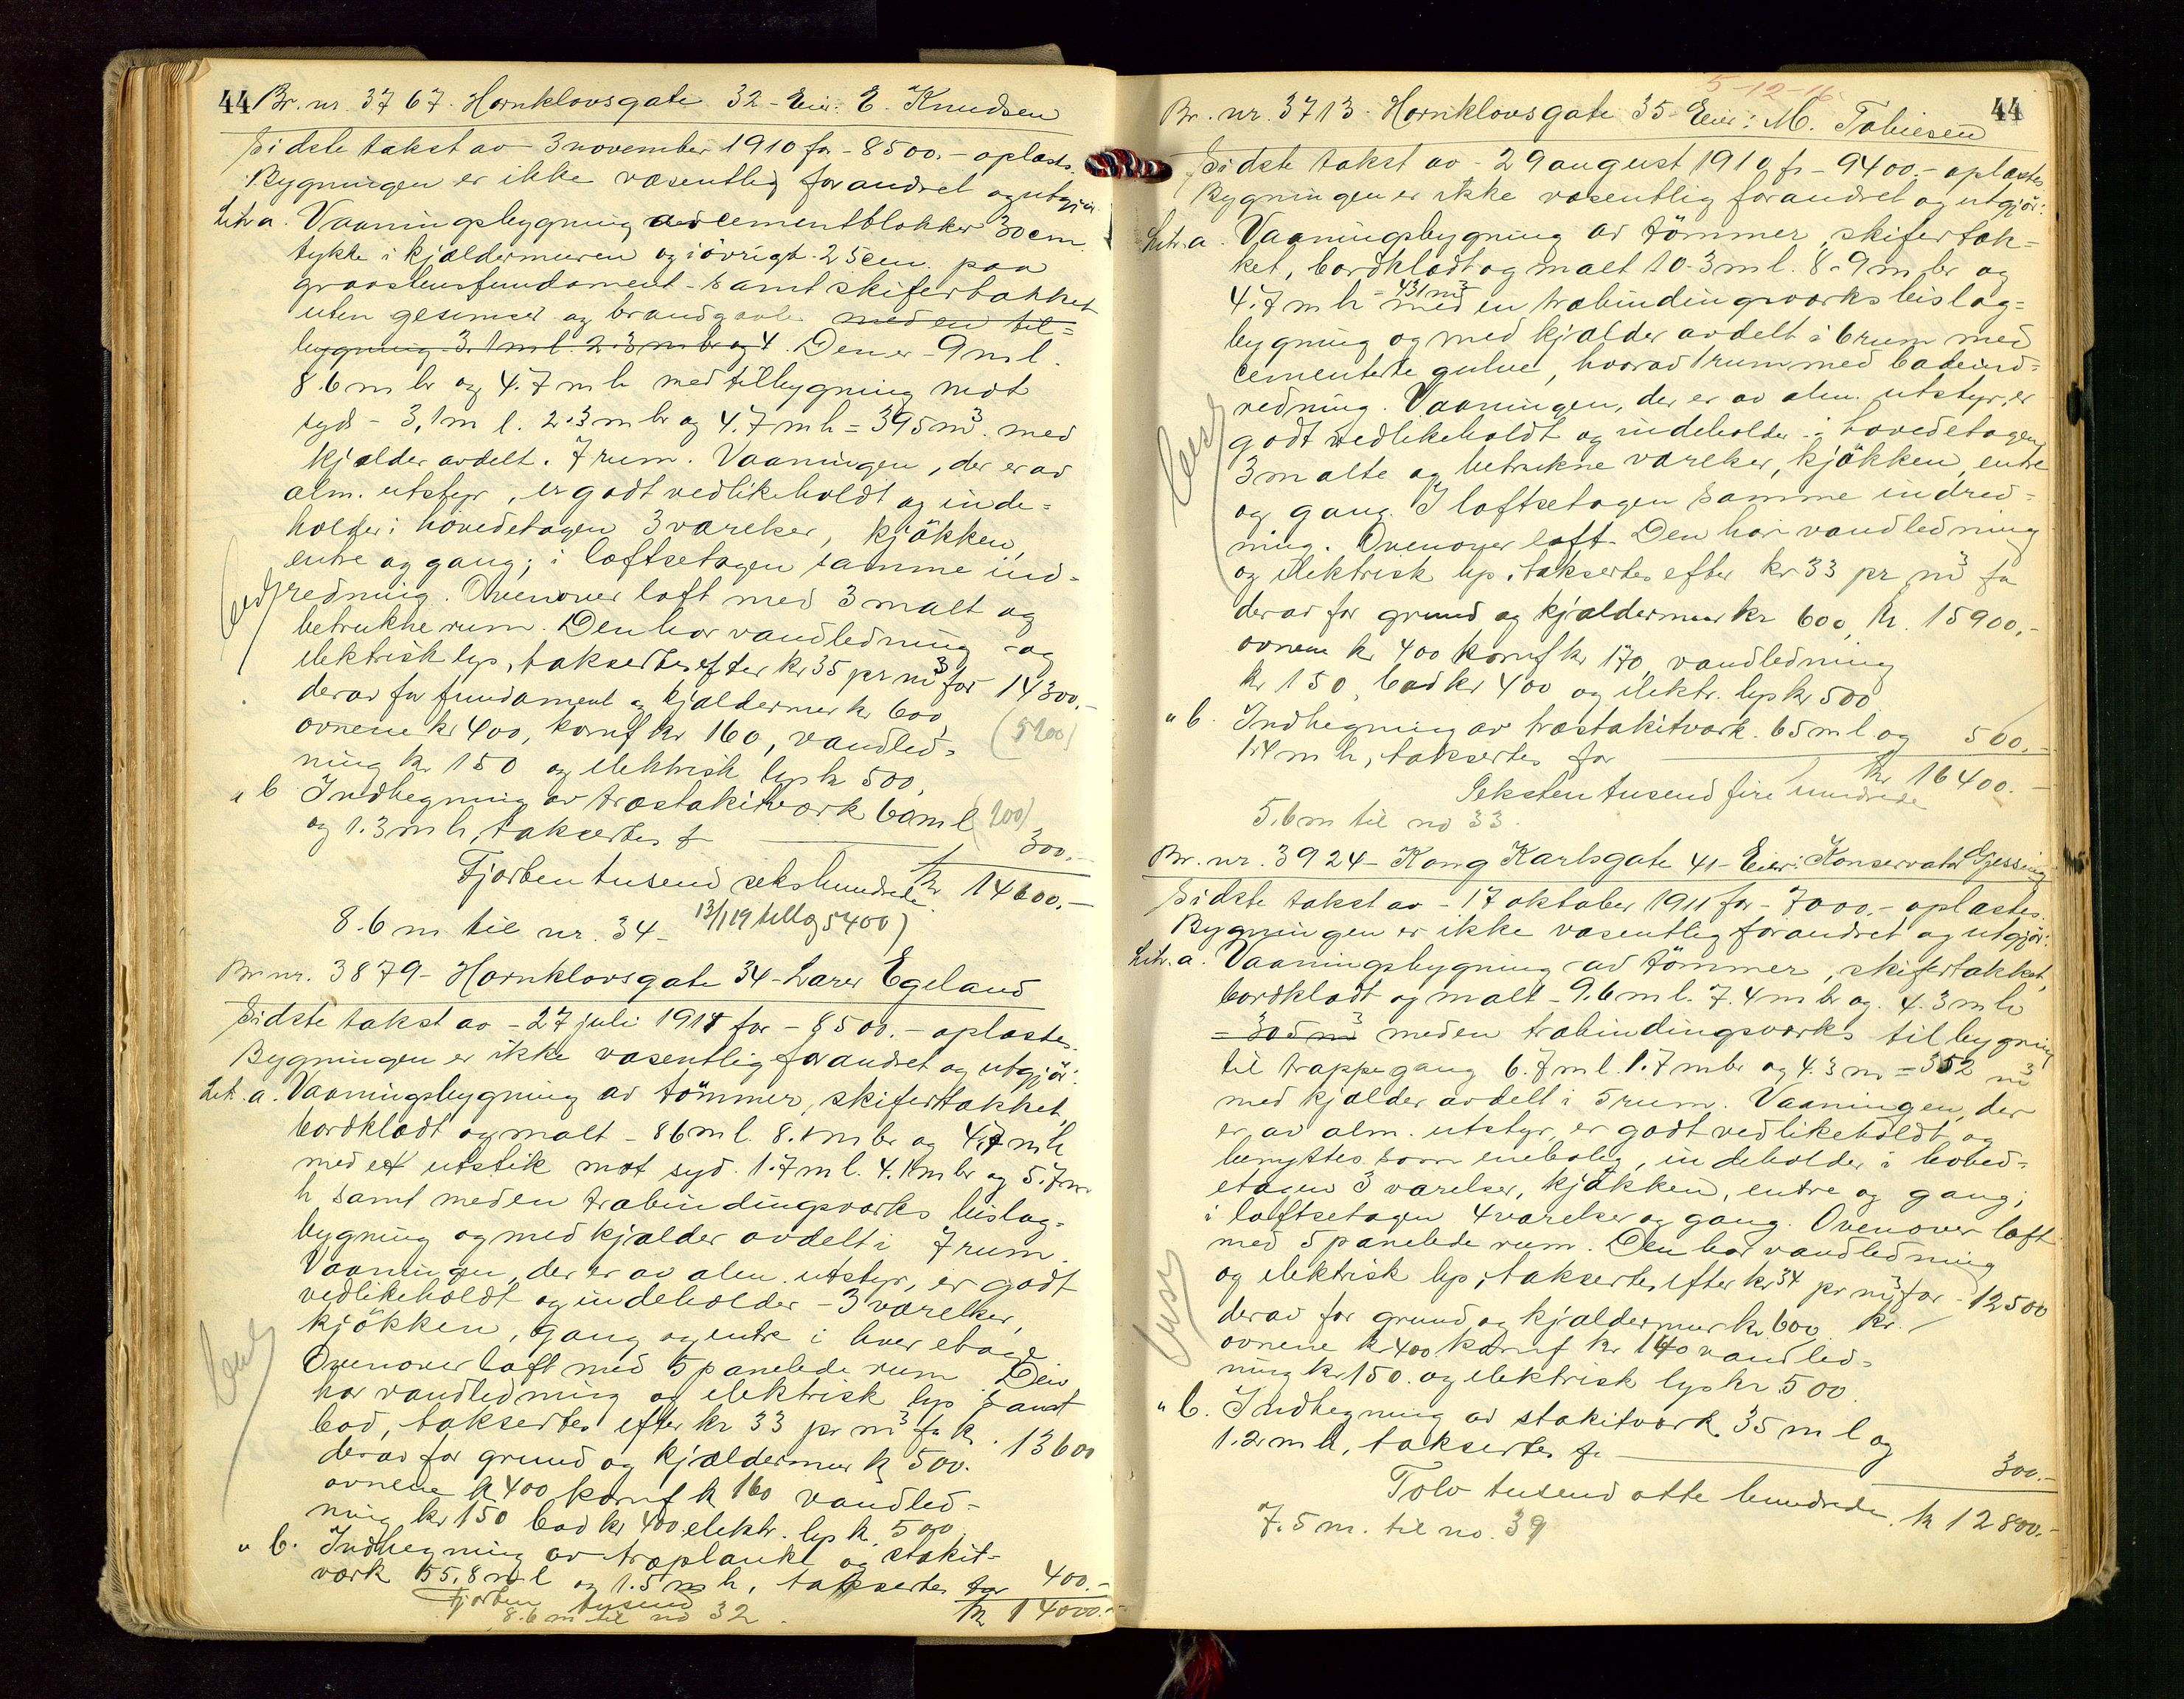 44 Br. nr. 3767. Hornklovsgate 32 - Eier: E. Knudsen
Sidste takst av - 3 november 1910 for - 8500.- oplæstes.
Bygningen er ikke væsentlig forandret og utgjør:
Litr a. Vaaningsbygning av cementblokker 30 cm
tykke i kjældermuren og i övrigt 25 cm. paa
graastensfundament - samt skifertækket
uten gesimser og brandgavle med en til=
bygning 3.1 m l. 2.3 m br og 4. Den er - 9 m l.
8.6 m br og 4.7 m h med tilbygning mot
syd - 3,1 m l. 2.3 m br og 4.7 m h = 395 m³. med
kjælder avdelt i 7 rum. Vaaningen, der er av
alm. utstyr, er godt vedlikeholdt og inde=
holder i hovedetagen 3 værelser, kjökken,
entre og gang; i loftsetagen samme ind=
redning. Ovenover loft med 3 malt og
betrukne rum. Den har vandledning og
elektrisk lys, taksertes efter kr 35 pr m³ for 14300.-
derav for fundament og kjældermur kr 600,
ovnene kr 400, komf kr 160, vandled= (5200)
ning kr 150 og elektrisk lys kr 500,
" b Indhegning av træstakitværk 60 m l (200)
og 1.3 m h, taksertes f 300.-
Fjorten tusend sekshundrede kr 14600.-
8.6 m til nr. 34 - 13/1 19 tillæg 5400)
Br. nr. 3879 - Hornklovsgate 34 - Lærer Egeland
Sidste takst av - 27 juli 1911 for - 8500.- oplæstes.
Bygningen er ikke væsentlig forandret og utgjør:
Litr. a. Vaaningsbygning av tömmer, skifertækket,
bordklædt og malt - 8 6 m l. 8.1 m br og 4.7 m h
med et utstik mot syd. 1.7 m l. 4.1 m br og 5.7 m
h samt med en træbindingsværks bislag=
bygning og med kjælder avdelt i 7 rum.
Vaaningen, der er av alm. utstyr, er godt
vedlikeholdt og indeholder - 3 værelser,
kjökken, gang og entre i hver etage
Ovenover loft med 5 panelede rum Den
har vandledning og elektrisk lys samt
bad, taksertes efter kr 33 pr m³ for kr. 13600
derav for grund og kjældermur kr 500.
ovnene kr 400 komf kr 160 vandled=
ning kr 150 bad kr 400 elektr. lys kr. 500
" b. Indhegning av træplanke og stakit=
værk 55,8 m l og 1.5 m h, taksertes for 400.-
Fjorten tusend kr 14000.-
8.6 m til no 32.
5-12-16
Br. nr. 3713 - Hornklovsgate 35 - Eier: M. Tobiesen 44
Sidste takst av - 29 august 1910 fr - 9400.- oplæstes
Bygningen er ikke væsentlig forandret og utgjör:
Litr. a. Vaaningsbygning av tömmer, skifertæk=
ket, bordklædt og malt 10.3 m l. 8.9 m br og
4.7 m h = 431 m³ med en træbindingsværks bislag=
bygning og med kjælder avdelt i 6 rum med
cementerte gulve, hvorav 1 rum med badeind=
redning. Vaaningen, der er av alm. utstyr, er
godt vedlikeholdt og indeholder i hovedetagen
3 malte og betrukne værelser, kjökken, entre
og gang. I loftsetagen samme indred=
ning. Ovenover loft. Den har vandledning
og elektrisk lys, taksertes efter kr 33 pr m³ for
derav for grund og kjældermur kr 600, kr. 15900.-
ovnene kr 400 komf kr 170, vandledning
kr 150, bad kr 400 og elektr. lys kr 500
" b. Indhegning av træstakitværk. 65 m l og 500.-
1.4 m h, taksertes for
kr 16400.-
Seksten tusend fire hundrede
5.6 m til no 33.
Br. nr. 3924 - Kong Karlsgate 41 - Eier: Konservator Gjessing
Sidste takst av - 17 oktober 1911 for - 7000.- oplæstes.
Bygningen er ikke væsentlig forandret og utgjör:
Litr. a. Vaaningsbygning av tömmer, skifertækket,
bordklædt og malt - 9.6 m l. 7.4 m br og 4.3 m h
= 305 m³ med en træbindingsværks tilbygning
til trappegang 6.7 m l. 1.7 m br og 4.3 m = 352 m³
med kjælder avdelt i 5 rum. Vaaningen, der
er av alm. utstyr, er godt vedlikeholdt og
benyttes som enebolig, indeholder i hoved=
etagen 3 værelser, kjökken, entre og gang;
i loftsetagen 4 værelser og gang. Ovenover loft
med 5 panelede rum. Den har vandledning
og elektrisk lys, taksertes efter kr 34 pr m³ for - 12500
derav for grund og kjældermur kr. 600 kr.
ovnene kr 400 komf kr 140 vandled=
ning kr 150. og elektrisk lys kr 500.
" b. Indhegning av stakitværk 35 m l og
1.2 m h, taksertes fr 300.-
Tolv tusend otte hundrede. kr 12800.-
7.5 m. til no. 39